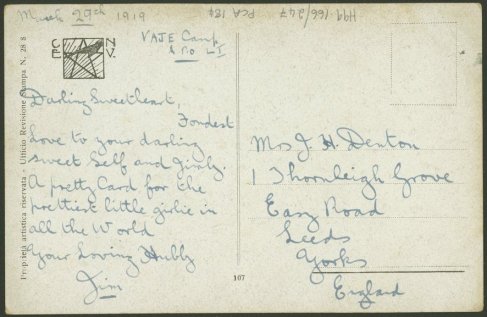 March 29th 1919
PCA 184
H99.166/247
VAJE Camp
& no LI
C A N
E V.
Darling Sweetheart,
Fondest
Love to your darling
sweet self and girly.
A pretty Card for the
prettiest little girlie in
all the World
Your Loving Hubby
Jim
Mrs J. H. Denton
1 Thornleigh Grove
Easy Road
Leeds
Yorks
England
107
Proprietà artistica riservata - Ufficio Revisione Stampa N. 28 S